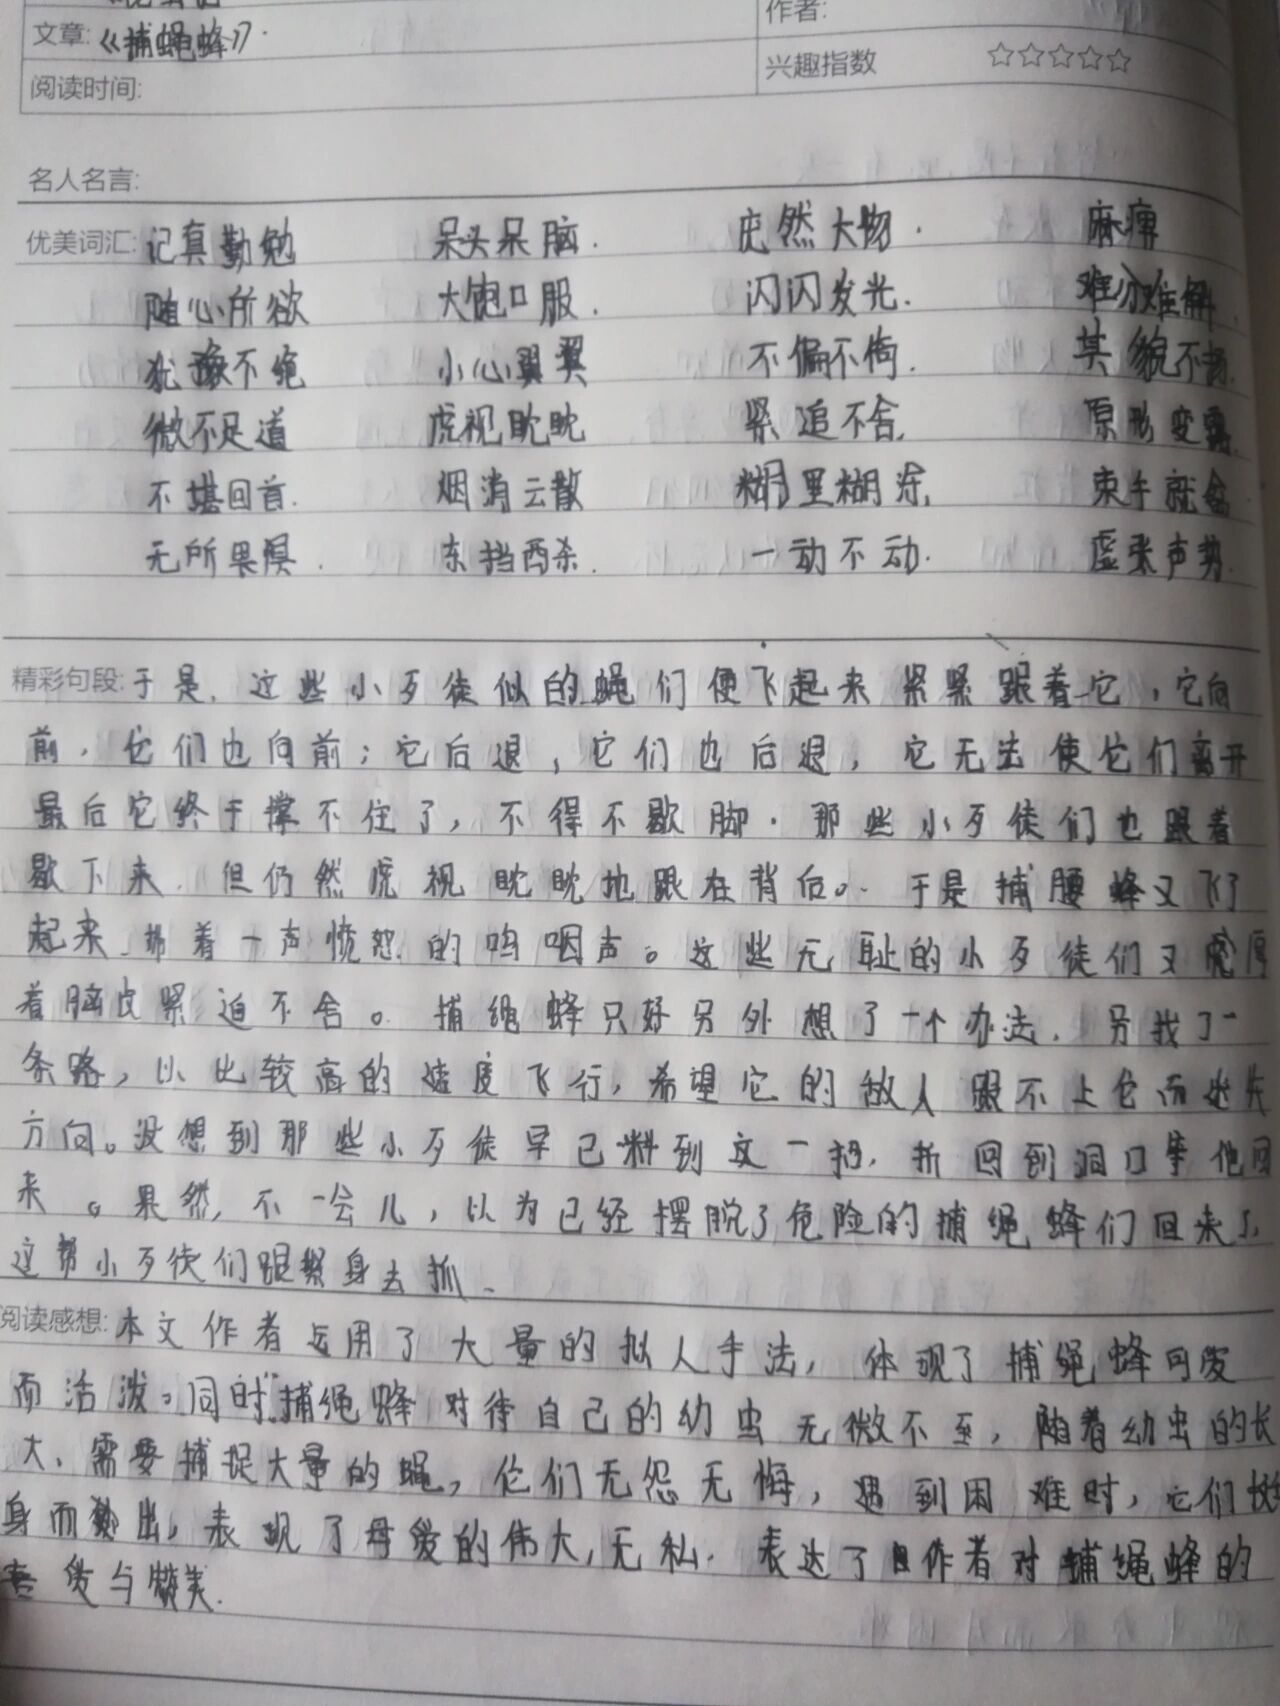 文章:《捕蝇蜂》
作者:
阅读时间:
兴趣指数 ☆☆☆☆☆
名人名言:
优美词汇: 记真勤勉 呆头呆脑. 庞然大物. 麻痹
随心所欲 大饱口服. 闪闪发光. 难分难解.
犹豫不绝 小心翼翼 不偏不倚. 其貌不扬.
微不足道 虎视眈眈 紧追不舍. 原形变露.
不堪回首. 烟消云散 糊里糊涂. 束手就擒.
无所畏惧. 东挡西杀. 一动不动. 虚张声势.
精彩句段: 于是,这些小歹徒似的蝇们便飞起来紧紧跟着它,它向
前,它们也向前;它后退,它们也后退,它无法使它们离开
最后它终于撑不住了,不得不歇脚.那些小歹徒们也跟着
歇下来.但仍然虎视眈眈地跟在背后。于是捕腰蜂又飞了
起来、带着一声愤怒的呜咽声。这些无耻的小歹徒们又厚
着脑皮紧追不舍。捕绳蜂只好另外想了一个办法,另找了一
条路,以比较高的速度飞行,希望它的敌人跟不上它而迷失
方向。没想到那些小歹徒早已料到这一招,折回到洞口等他回
来。果然,不一会儿,以为已经摆脱了危险的捕绳蜂们回来了,
这帮小歹徒们跟紧身去抓、
阅读感想: 本文作者运用了大量的拟人手法,体现了捕绳蜂可爱
而活泼。同时"捕绳蜂对待自己的幼虫无微不至,随着幼虫的长
大、需要捕捉大量的蝇,它们无怨无悔,遇到困难时,它们挺
身而出,表现了母爱的伟大,无私.表达了作者对捕绳蜂的
喜爱与赞美.